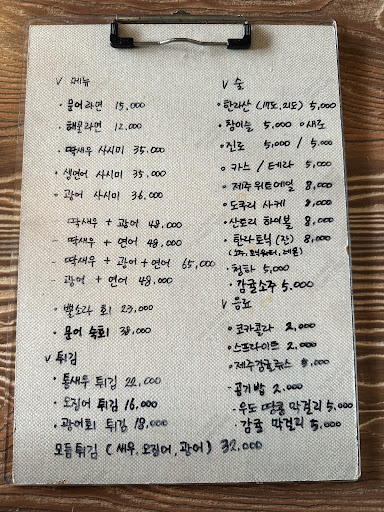 V 메뉴
· 문어라면 15,000
· 해물라면 12,000
· 딱새우 사시미 35.000
· 생연어 사시미 35.000
· 광어 사시미 36.000
딱새우 + 광어 48,000
- 딱새우 + 연어 48,000
- 딱새우 + 광어 + 연어 65,000
- 광어 + 연어 48,000
· 뿔소라 회 23,000
· 문어 숙회 38,000
V 튀김
· 통새우 튀김 22,000
· 오징어 튀김 16,000
· 광어회 튀김 18,000
모듬튀김 (새우, 오징어, 광어) 32,000
V 술
· 한라산 (17도, 21도) 5,000
· 참이슬 5,000 o 새로
· 진로 5,000 / 5,000
o 카스 / 테라 5,000
· 제주 위트에일 8,000
· 도쿠리 사케 8,000
· 산토리 하이볼 8,000
· 한라토닉 (잔) 8,000
(소주, 토닉워터, 레몬)
· 청하 5,000
· 감귤소주 5.000
V 음료
· 코카콜라 2,000
· 스프라이트 2,000
· 제주감귤쥬스
- 공기밥 2,000
- 우도 땅콩 막걸리 5,000
· 감귤 막걸리 5,000